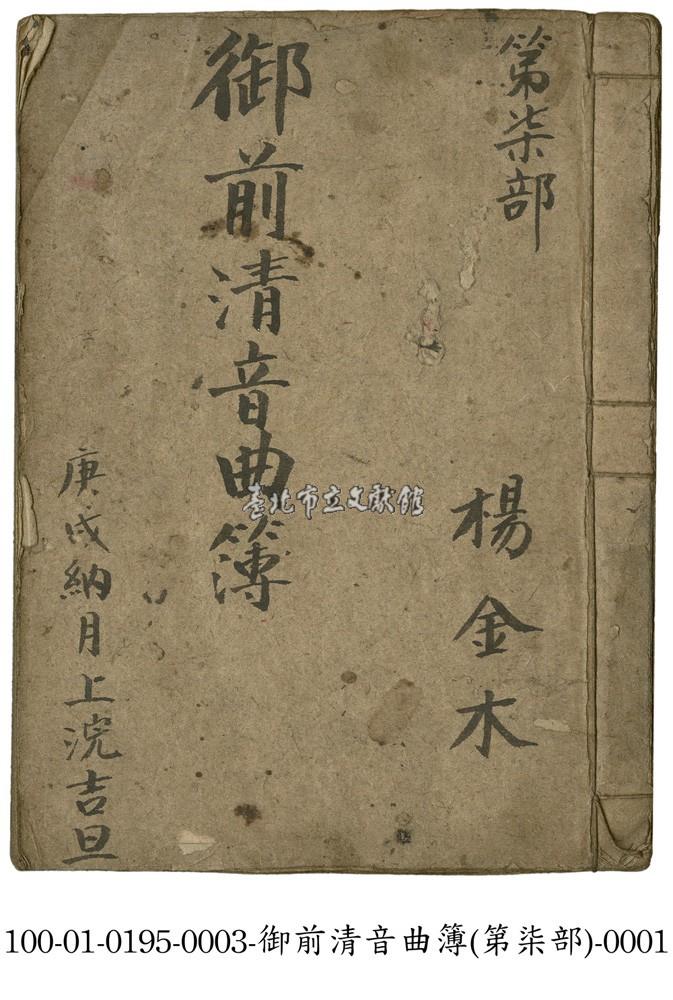 第柒部
楊金木
御前清音曲簿
庚戌納月上浣吉旦
臺北市立文獻館
100-01-0195-0003-御前清音曲簿(第柒部)-0001